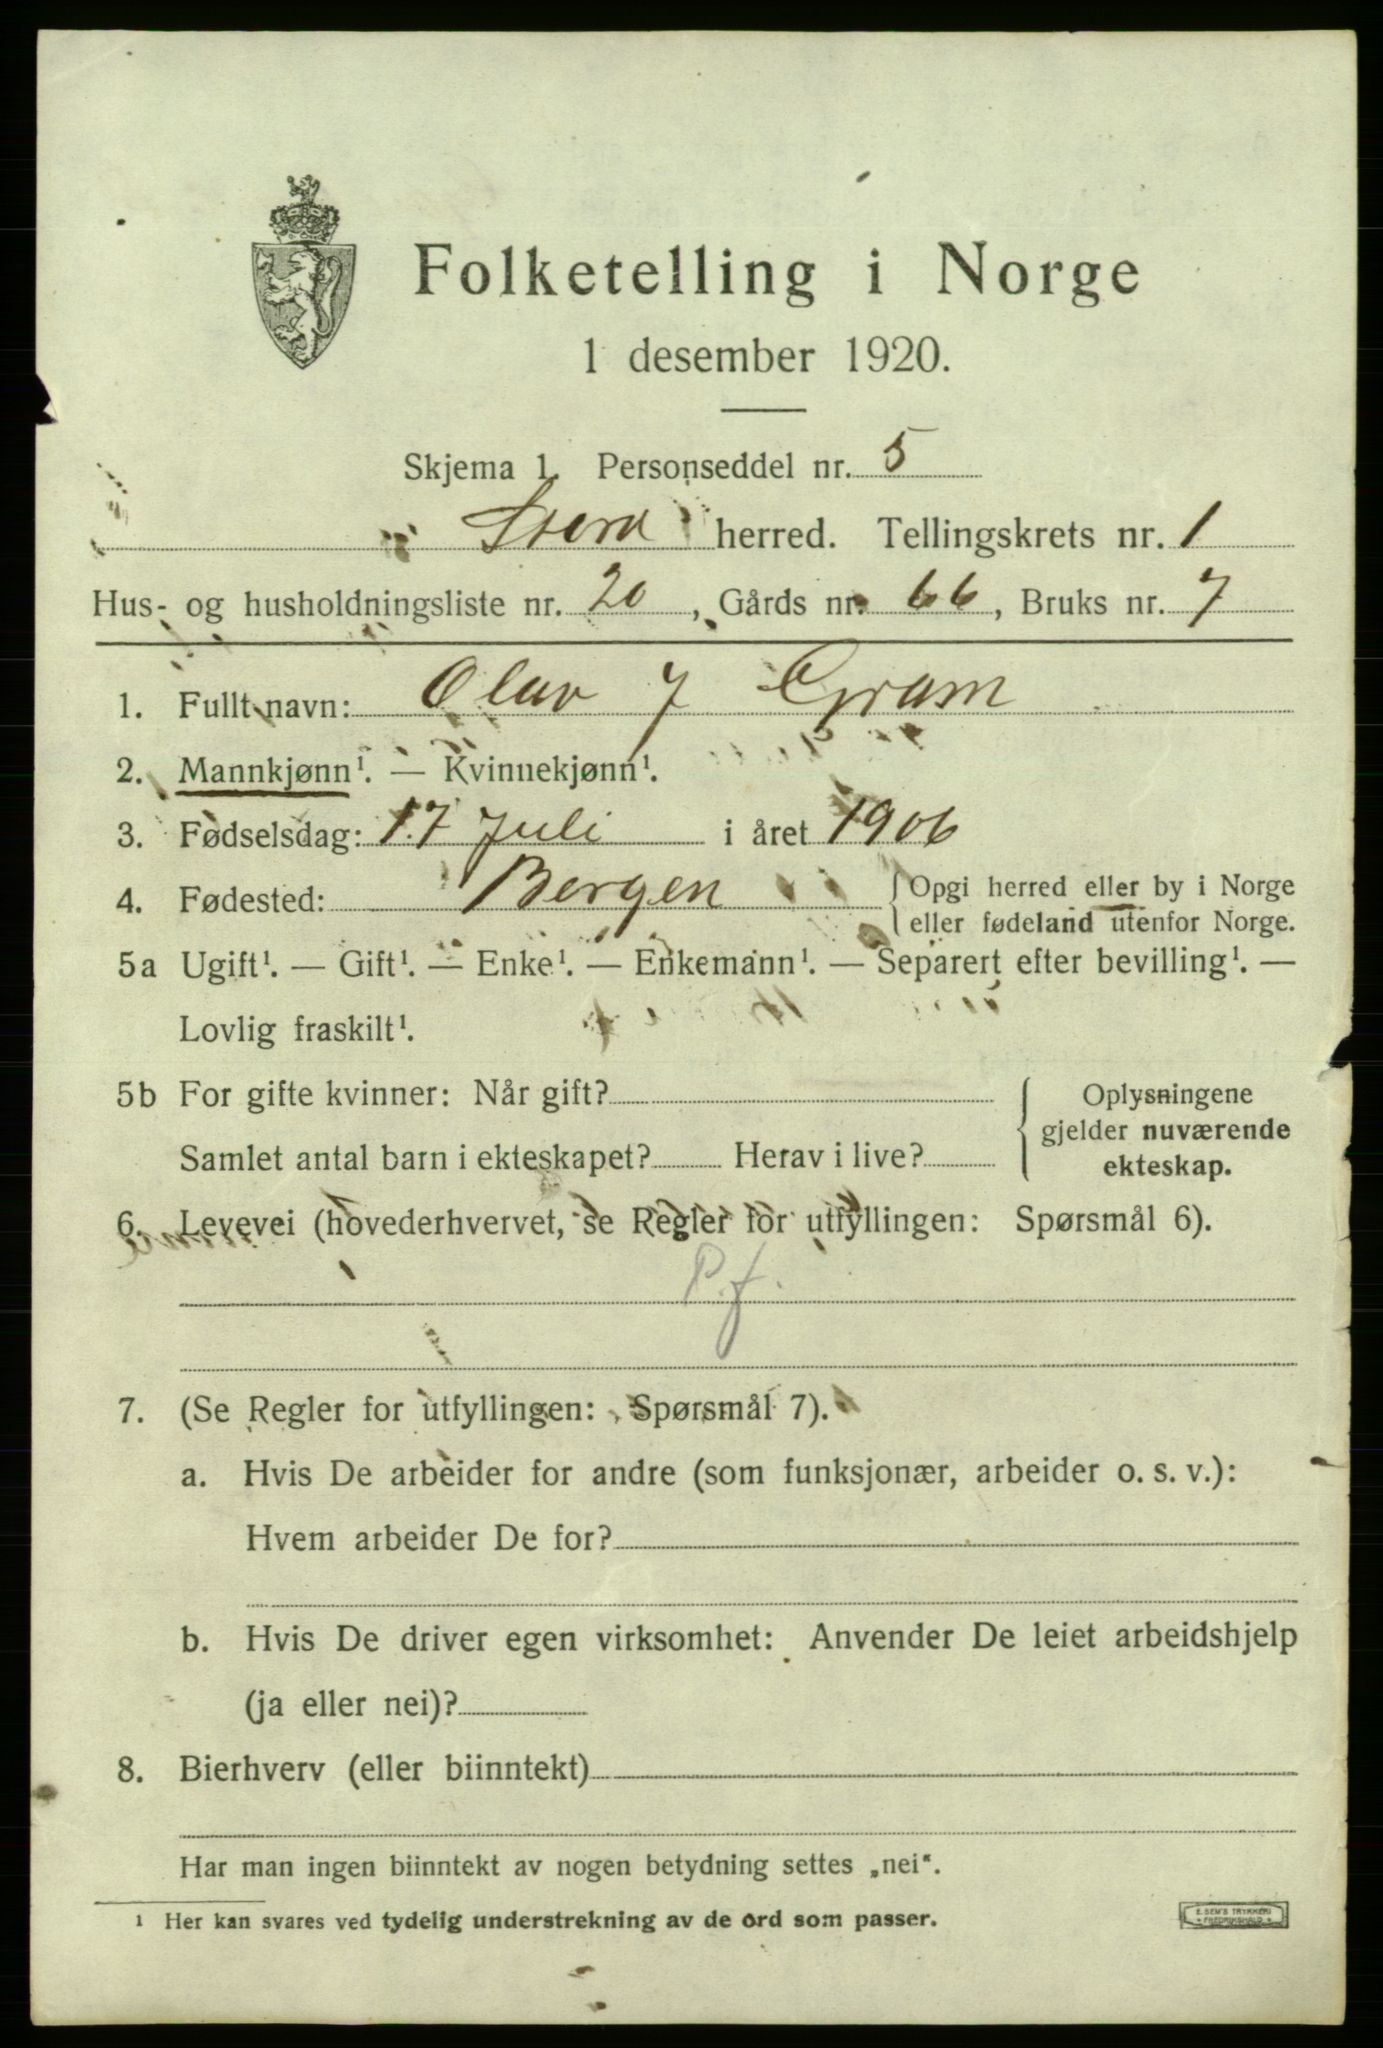 Folketelling i Norge
1 desember 1920.
Skjema 1. Personseddel nr. 5
Stord herred. Tellingskrets nr. 1
Hus- og husholdningsliste nr. 20, Gårds nr. 66, Bruks nr. 7
1. Fullt navn: Olav J Gram
2. Mannkjønn¹. — Kvinnekjønn¹.
3. Fødselsdag: 17 Juli i året 1906
4. Fødested: Bergen {Opgi herred eller by i Norge
eller fødeland utenfor Norge.
5a Ugift¹. — Gift¹. — Enke¹. — Enkemann¹. — Separert efter bevilling¹. —
Lovlig fraskilt¹.
5b For gifte kvinner: Når gift? { Oplysningene
gjelder nuværende
Samlet antal barn i ekteskapet? Herav i live? ekteskap.
6. Levevei (hovederhvervet, se Regler for utfyllingen: Spørsmål 6).
P.f.
7. (Se Regler for utfyllingen: Spørsmål 7).
a. Hvis De arbeider for andre (som funksjonær, arbeider o. s. v.):
Hvem arbeider De for?
b. Hvis De driver egen virksomhet: Anvender De leiet arbeidshjelp
(ja eller nei)?
8. Bierhverv (eller biinntekt)
Har man ingen biinntekt av nogen betydning settes „nei“.
¹ Her kan svares ved tydelig understrekning av de ord som passer.
E. SEM'S TRYKKERI
FREDRIKSHALD